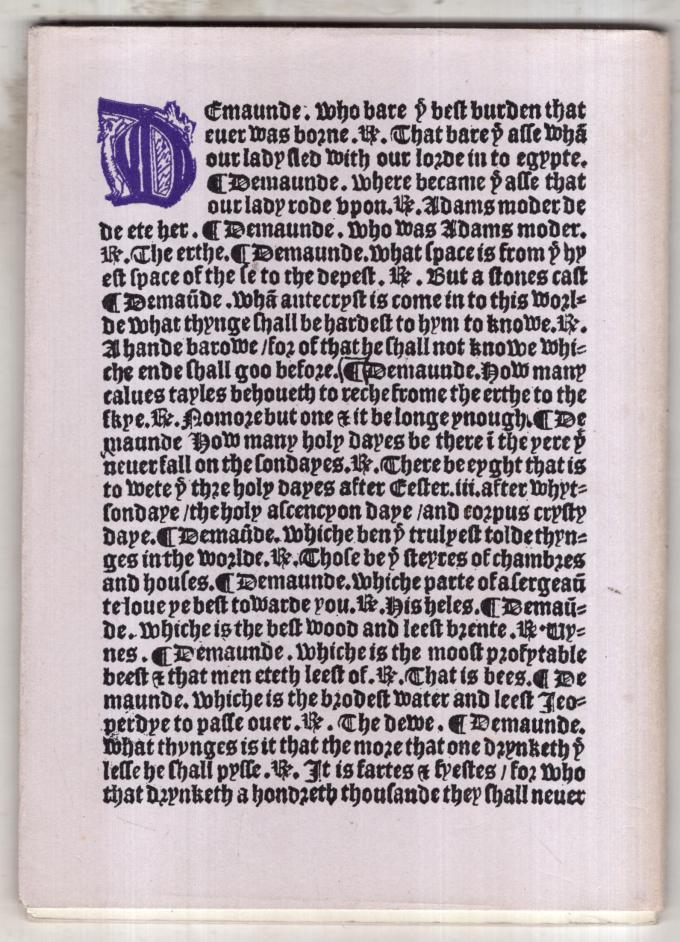 DEmaunde. Who bare ẏ best burden that
euer was borne. ℞. That bare ẏ asse whā
our lady fled with our lorde in to egypte.
¶ Demaunde. Where became ẏ asse that
our lady rode vpon. ℞. Adams moder de
de ete her. ¶ Demaunde. who was Adams moder.
℞. The erthe. ¶ Demaunde. what space is from ẏ hy
est space of the se to the depest. ℞. But a stones cast
¶ Demaūde. whā antecryst is come in to this worl=
de what thynge shall be hardest to hym to knowe. ℞.
A hande barowe / for of that he shall not knowe whi=
che ende shall goo before. ¶ Demaunde. How many
calues tayles behoueth to reche frome the erthe to the
skye. ℞. No more but one & it be longe ynough. ¶ De
maunde How many holy dayes be there ī the yere ẏ
neuer fall on the sondayes. ℞. There be eyght that is
to wete ẏ thre holy dayes after Eester. iii. after whyt=
sondaye / the holy ascencyon daye / and corpus crysty
daye. ¶ Demaūde. whiche ben ẏ trulyest tolde thyn=
ges in the worlde. ℞. Those be ẏ steyres of chambres
and houses. ¶ Demaunde. whiche parte of a sergeaū
te loue ye best towarde you. ℞. His heles. ¶ Demaū=
de. whiche is the best wood and leest brente. ℞. Uy=
nes. ¶ Demaunde. whiche is the moost profytable
beest & that men eteth leest of. ℞. That is bees. ¶ De
maunde. whiche is the brodest water and leest Jeo=
perdye to passe ouer. ℞. The dewe. ¶ Demaunde.
what thynges is it that the more that one drynketh ẏ
lesse he shall pysse. ℞. It is fartes & fyestes / for who
that drynketh a hondreth thousande they shall neuer